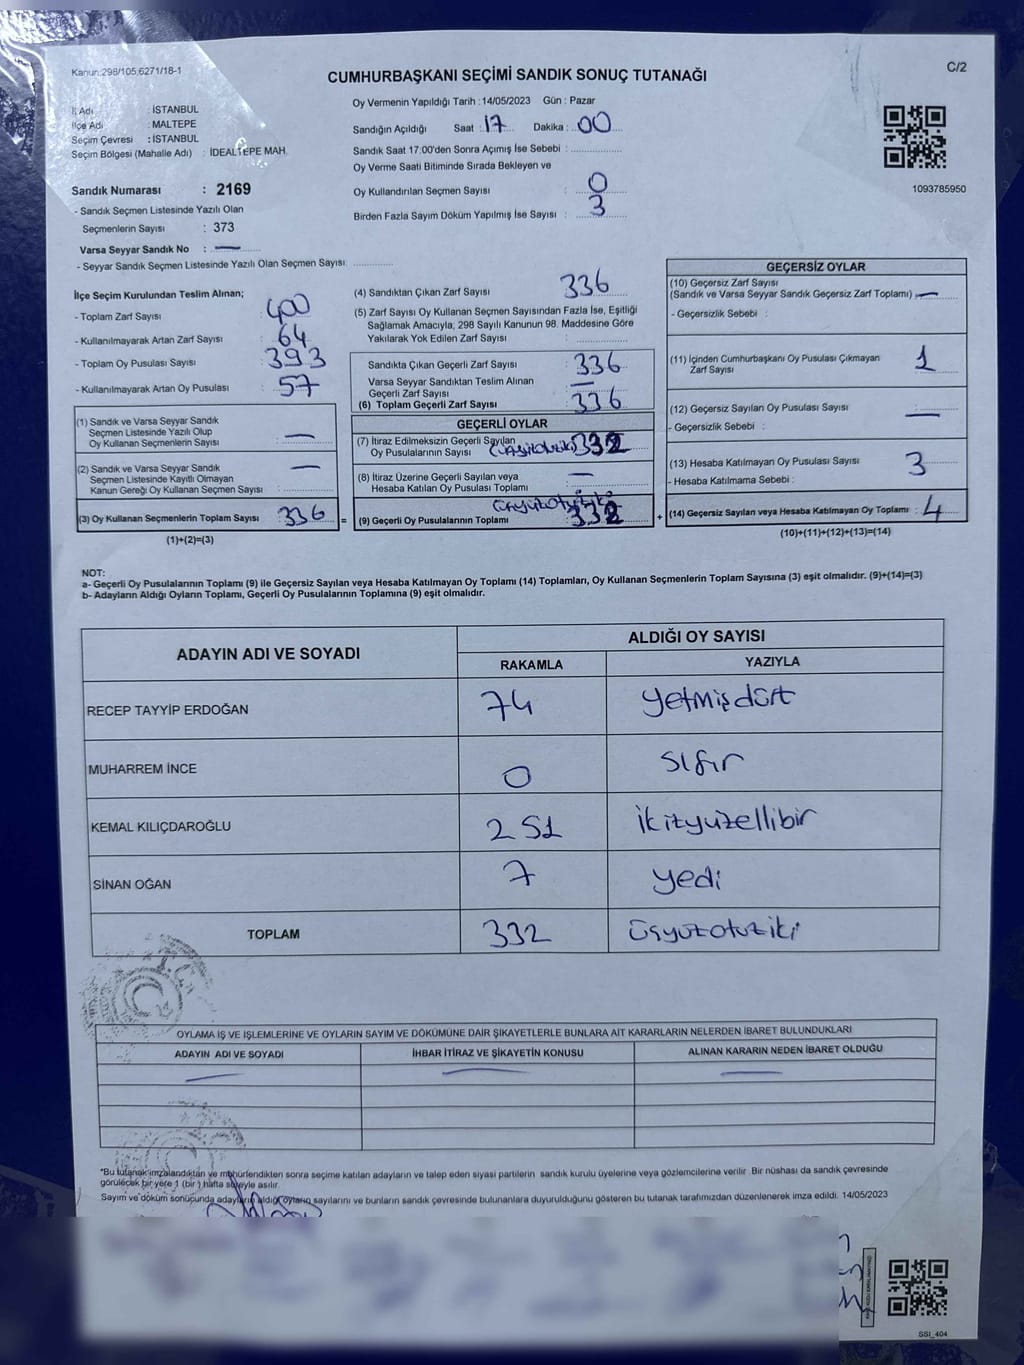 Kanun:298/105,6271/18-1
CUMHURBAŞKANI SEÇİMİ SANDIK SONUÇ TUTANAĞI
C/2
İl Adı : İSTANBUL
İlçe Adı : MALTEPE
Seçim Çevresi : İSTANBUL
Seçim Bölgesi (Mahalle Adı) : İDEALTEPE MAH.
Sandık Numarası : 2169
- Sandık Seçmen Listesinde Yazılı Olan
Seçmenlerin Sayısı : 373
Varsa Seyyar Sandık No : —
- Seyyar Sandık Seçmen Listesinde Yazılı Olan Seçmen Sayısı:
Oy Vermenin Yapıldığı Tarih : 14/05/2023 Gün : Pazar
Sandığın Açıldığı Saat : 17 Dakika : 00
Sandık Saat 17:00'den Sonra Açımış İse Sebebi :
Oy Verme Saati Bitiminde Sırada Bekleyen ve
Oy Kullandırılan Seçmen Sayısı : 0
Birden Fazla Sayım Döküm Yapılmış İse Sayısı : 3
1093785950
İlçe Seçim Kurulundan Teslim Alınan;
- Toplam Zarf Sayısı : 400
- Kullanılmayarak Artan Zarf Sayısı : 64
- Toplam Oy Pusulası Sayısı : 393
- Kullanılmayarak Artan Oy Pusulası : 57
(1) Sandık ve Varsa Seyyar Sandık
Seçmen Listesinde Yazılı Olup
Oy Kullanan Seçmenlerin Sayısı : —
(2) Sandık ve Varsa Seyyar Sandık
Seçmen Listesinde Kayıtlı Olmayan
Kanun Gereği Oy Kullanan Seçmen Sayısı : —
(3) Oy Kullanan Seçmenlerin Toplam Sayısı : 336 =
(1)+(2)=(3)
(4) Sandıktan Çıkan Zarf Sayısı : 336
(5) Zarf Sayısı Oy Kullanan Seçmen Sayısından Fazla İse, Eşitliği
Sağlamak Amacıyla, 298 Sayılı Kanunun 98. Maddesine Göre
Yakılarak Yok Edilen Zarf Sayısı :
Sandıkta Çıkan Geçerli Zarf Sayısı : 336
Varsa Seyyar Sandıktan Teslim Alınan
Geçerli Zarf Sayısı : —
(6) Toplam Geçerli Zarf Sayısı : 336
GEÇERLİ OYLAR
(7) İtiraz Edilmeksizin Geçerli Sayılan
Oy Pusulalarının Sayısı : 332
(8) İtiraz Üzerine Geçerli Sayılan veya
Hesaba Katılan Oy Pusulası Toplamı : —
üçyüzotuziki
(9) Geçerli Oy Pusulalarının Toplamı : 332 +
GEÇERSİZ OYLAR
(10) Geçersiz Zarf Sayısı
(Sandık ve Varsa Seyyar Sandık Geçersiz Zarf Toplamı) : —
- Geçersizlik Sebebi :
(11) İçinden Cumhurbaşkanı Oy Pusulası Çıkmayan
Zarf Sayısı : 1
(12) Geçersiz Sayılan Oy Pusulası Sayısı : —
- Geçersizlik Sebebi :
(13) Hesaba Katılmayan Oy Pusulası Sayısı : 3
- Hesaba Katılmama Sebebi :
(14) Geçersiz Sayılan veya Hesaba Katılmayan Oy Toplamı : 4
(10)+(11)+(12)+(13)=(14)
NOT:
a- Geçerli Oy Pusulalarının Toplamı (9) ile Geçersiz Sayılan veya Hesaba Katılmayan Oy Toplamı (14) Toplamları, Oy Kullanan Seçmenlerin Toplam Sayısına (3) eşit olmalıdır. (9)+(14)=(3)
b- Adayların Aldığı Oyların Toplamı, Geçerli Oy Pusulalarının Toplamına (9) eşit olmalıdır.
ADAYIN ADI VE SOYADI ALDIĞI OY SAYISI
RAKAMLA YAZIYLA
RECEP TAYYİP ERDOĞAN 74 yetmişdört
MUHARREM İNCE 0 sıfır
KEMAL KILIÇDAROĞLU 251 ikizyuzellibir
SİNAN OĞAN 7 yedi
TOPLAM 332 üçyüzotuziki
OYLAMA İŞ VE İŞLEMLERİNE VE OYLARIN SAYIM VE DÖKÜMÜNE DAİR ŞİKAYETLERLE BUNLARA AİT KARARLARIN NELERDEN İBARET BULUNDUKLARI
ADAYIN ADI VE SOYADI İHBAR İTİRAZ VE ŞİKAYETİN KONUSU ALINAN KARARIN NEDEN İBARET OLDUĞU
— — —
*Bu tutanak imzalandıktan ve mühürlendikten sonra seçime katılan adayların ve talep eden siyasi partilerin sandık kurulu üyelerine veya gözlemcilerine verilir. Bir nüshası da sandık çevresinde
görülecek bir yere 1 (bir) hafta süreyle asılır.
Sayım ve döküm sonuçunda adayların aldığı oyların sayılarını ve bunların sandık çevresinde bulunanlara duyurulduğunu gösteren bu tutanak tarafımızdan düzenlenerek imza edildi. 14/05/2023
SSI_404